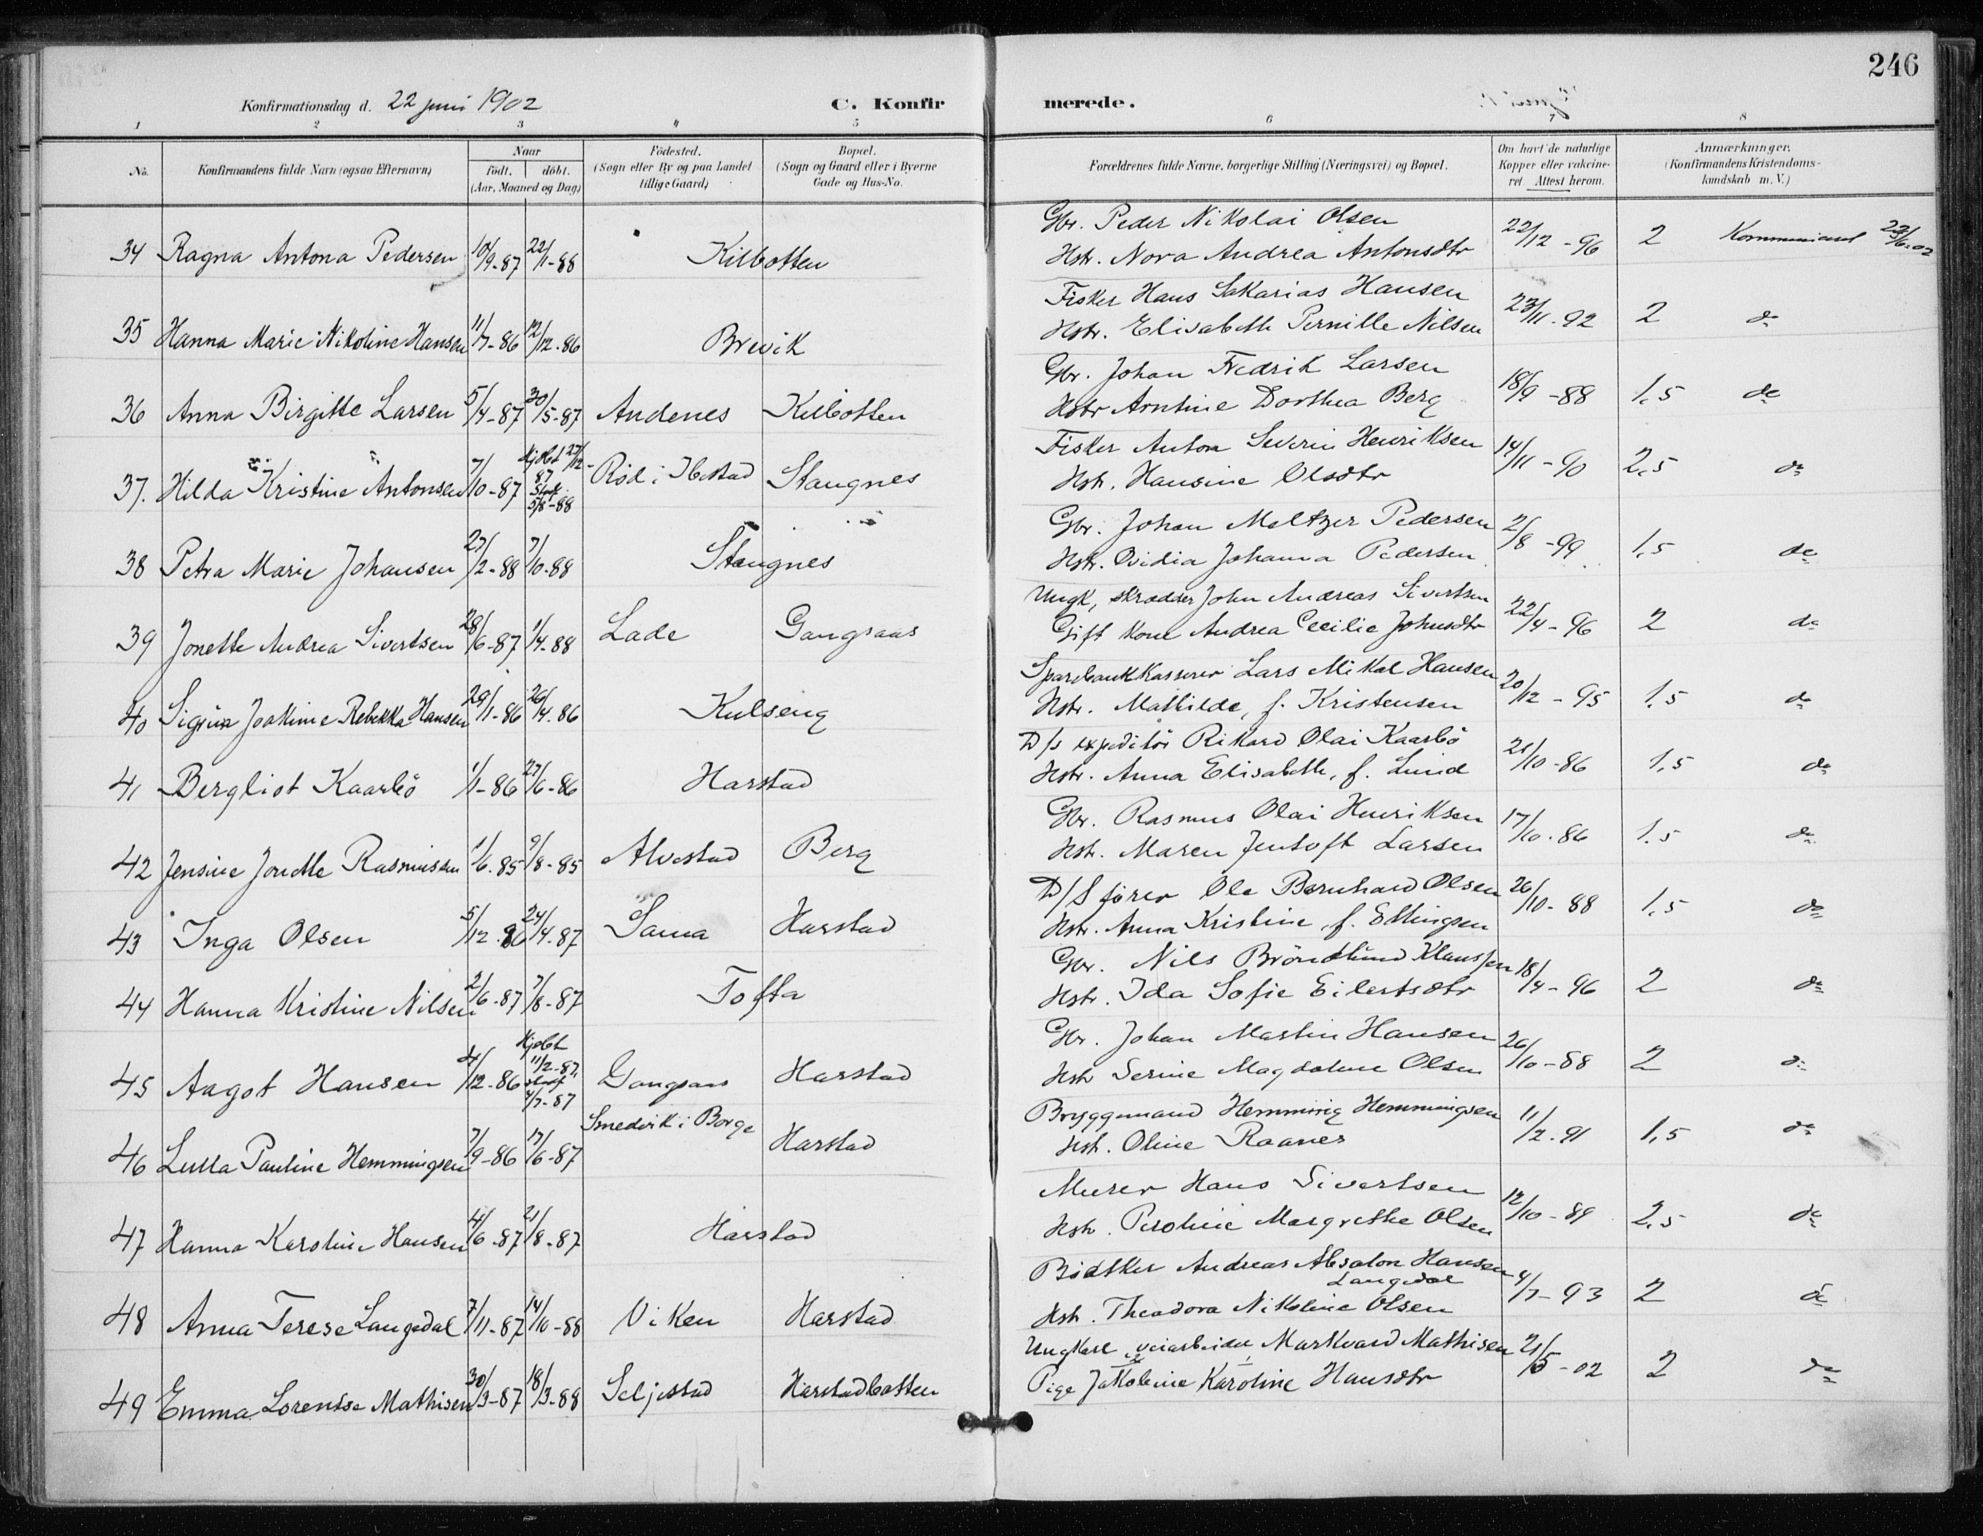 246
Konfirmationsdag d. 22 juni 1902 C. Konfir merede.
1 2 3 4 5 6 7 8
No. Konfirmandens fulde Navn (ogsaa Efternavn) Naar født. døbt. (Aar, Maaned og Dag) Fødested. (Sogn eller By og paa Landet tillige Gaard) Bopæl. (Sogn og Gaard eller i Byerne Gade og Hus-No. Forældrenes fulde Navne, borgerlige Stilling (Næringsvei) og Bopæl. Om havt de naturlige Kopper eller vakcineret. Attest herom. Anmærkninger. (Konfirmandens Kristendomskundskab m. V.)
34 Ragna Antona Pedersen 10/9-87 22/1-88 Kilbotten Gbr. Peder Nikolai Olsen 22/12-96 2 Kommunicert 23/6.02
Hstr. Nora Andrea Antonsdtr
35 Hanna Marie Nikoline Hansen 11/7-86 12/12-86 Brevik Fisker Hans Sakarias Hansen 23/11-92 2 do
Hstr. Elisabeth Pernille Nilsen
36 Anna Birgitte Larsen 5/4-87 30/5-87 Andenes Kilbotten Gbr. Johan Fredrik Larsen 18/9-88 1,5 do
Hstr Arntine Dorthea Berg
37. Hilda Kristine Antonsen 7/10-87 Hjdbt 27/12-87 Stadf. 5/8-88 Rød i Ibestad Stangnes Fisker Anton Severin Henriksen 14/11-90 2,5 do
Hstr. Hansine Olsdtr
38 Petra Marie Johansen 27/2-88 7/10-88 Stangnes Gbr. Johan Meltzer Pedersen 2/8-99 1,5 do
Hstr. Ovidia Johanna Pedersen
39 Jonette Andrea Sivertsen 28/6-87 1/4-88 Lade Gangsaas Ungk, skrædder John Andreas Sivertsen 22/4-96 2 do
Gift kone Andrea Cecilie Johnsdtr
40 Joakime Rebekka Hansen 29/1-86 26/4.86 Kulseng Sparebankkasserer Lars Mikal Hansen 20/12-95 1,5 do
Hstr. Mathilde, f. Kristensen
41 Bergliot Kaarbö 1/1-86 27/6-86 Harstad D/s expeditör Rikard Olai Kaarbö 21/10-86 1,5 do
Hstr. Anna Elisabeth, f. Lund
42 Jensine Jonette Rasmussen 1/6.85 9/8-85 Alvestad Berg Gbr. Rasmus Olai Henriksen 17/10.86 1.5 do
Hstr. Maren Jentoft Larsen
43 Inga Olsen 5/12.86 24/4.87 Sama Harstad D/S fører Ole Bernhard Olsen 26/10-88 1,5 do
Hstr. Anna Kristine, f. Ellingsen
44 Hanna Kristine Nilsen 2/6-87 7/8-87 Tofta Gbr. Nils Bröndlund Klaussen 18/4-96 2 do
Hstr. Ida Sofie Eilertsdtr
45 Aagot Hansen 4/12-86 Hjdbt 11/2-87, stadf 4/7-87 Gangsaas Harstad Gbr. Johan Martin Hansen 26/10-88 2 do
Hstr Serine Magdalene Olsen
46 Lulla Pauline Hemmingsen 7/9-86 17/6-87 Smedvik i Borge Harstad Bryggemand Hemming Hemmingsen 11/2.91 1,5 do
Hstr. Oline Raanes
47 Hanna Karoline Hansen 4/6-87 21/8-87 Harstad Murer Hans Sivertsen 12/10-89 2,5 do
Hstr. Peroline Margrethe Olsen
48 Anna Terese Langedal 7/11-87 14/10-88 Viken Harstad Bødtker Andreas Absalon Hansen Langedal 4/7-93 2 do
Hstr. Theodora Nikoline Olsen
49 Emma Lorentse Mathisen 30/3-87 18/3-88 Seljestad Harstadbotten Ungkarl, veiarbeider Markvard Mathisen 21/5-02 2 do
Pige Jakobine Karoline Hansdtr